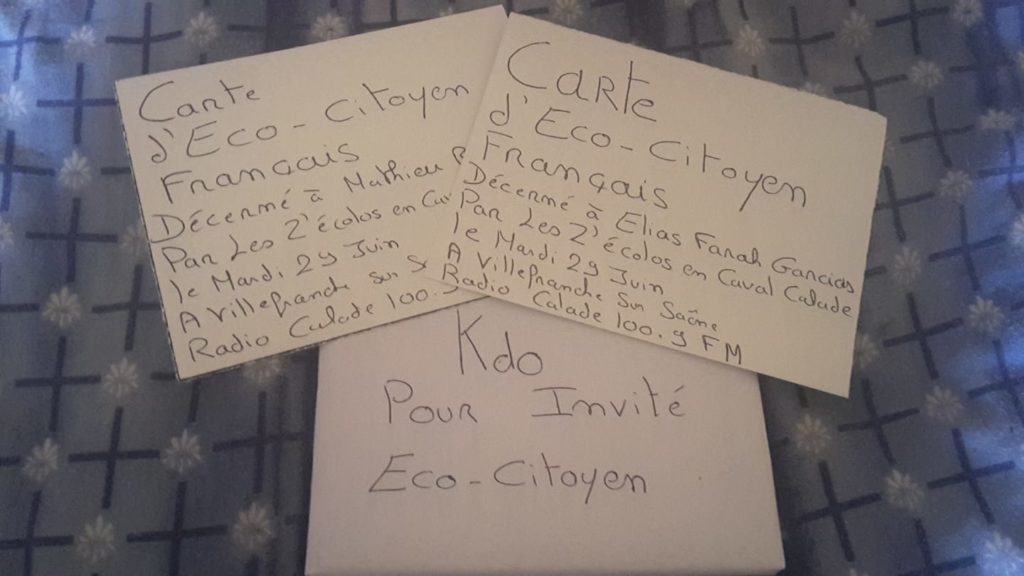 Carte
d'Eco-Citoyen
Français
Décerné à Mathieu
Par Les Z'écolos en
le Mardi 29 Juin
A Villefranche sur
Radio Calade 100.
Carte
d'Eco-Citoyen
Français
Décerné à Elias Fanah Gancias
Par Les Z'écolos en Caval Calade
le Mardi 29 Juin
A Villefranche Sur Saône
Radio Calade 100.9 FM
Kdo
Pour Invité
Eco-Citoyen